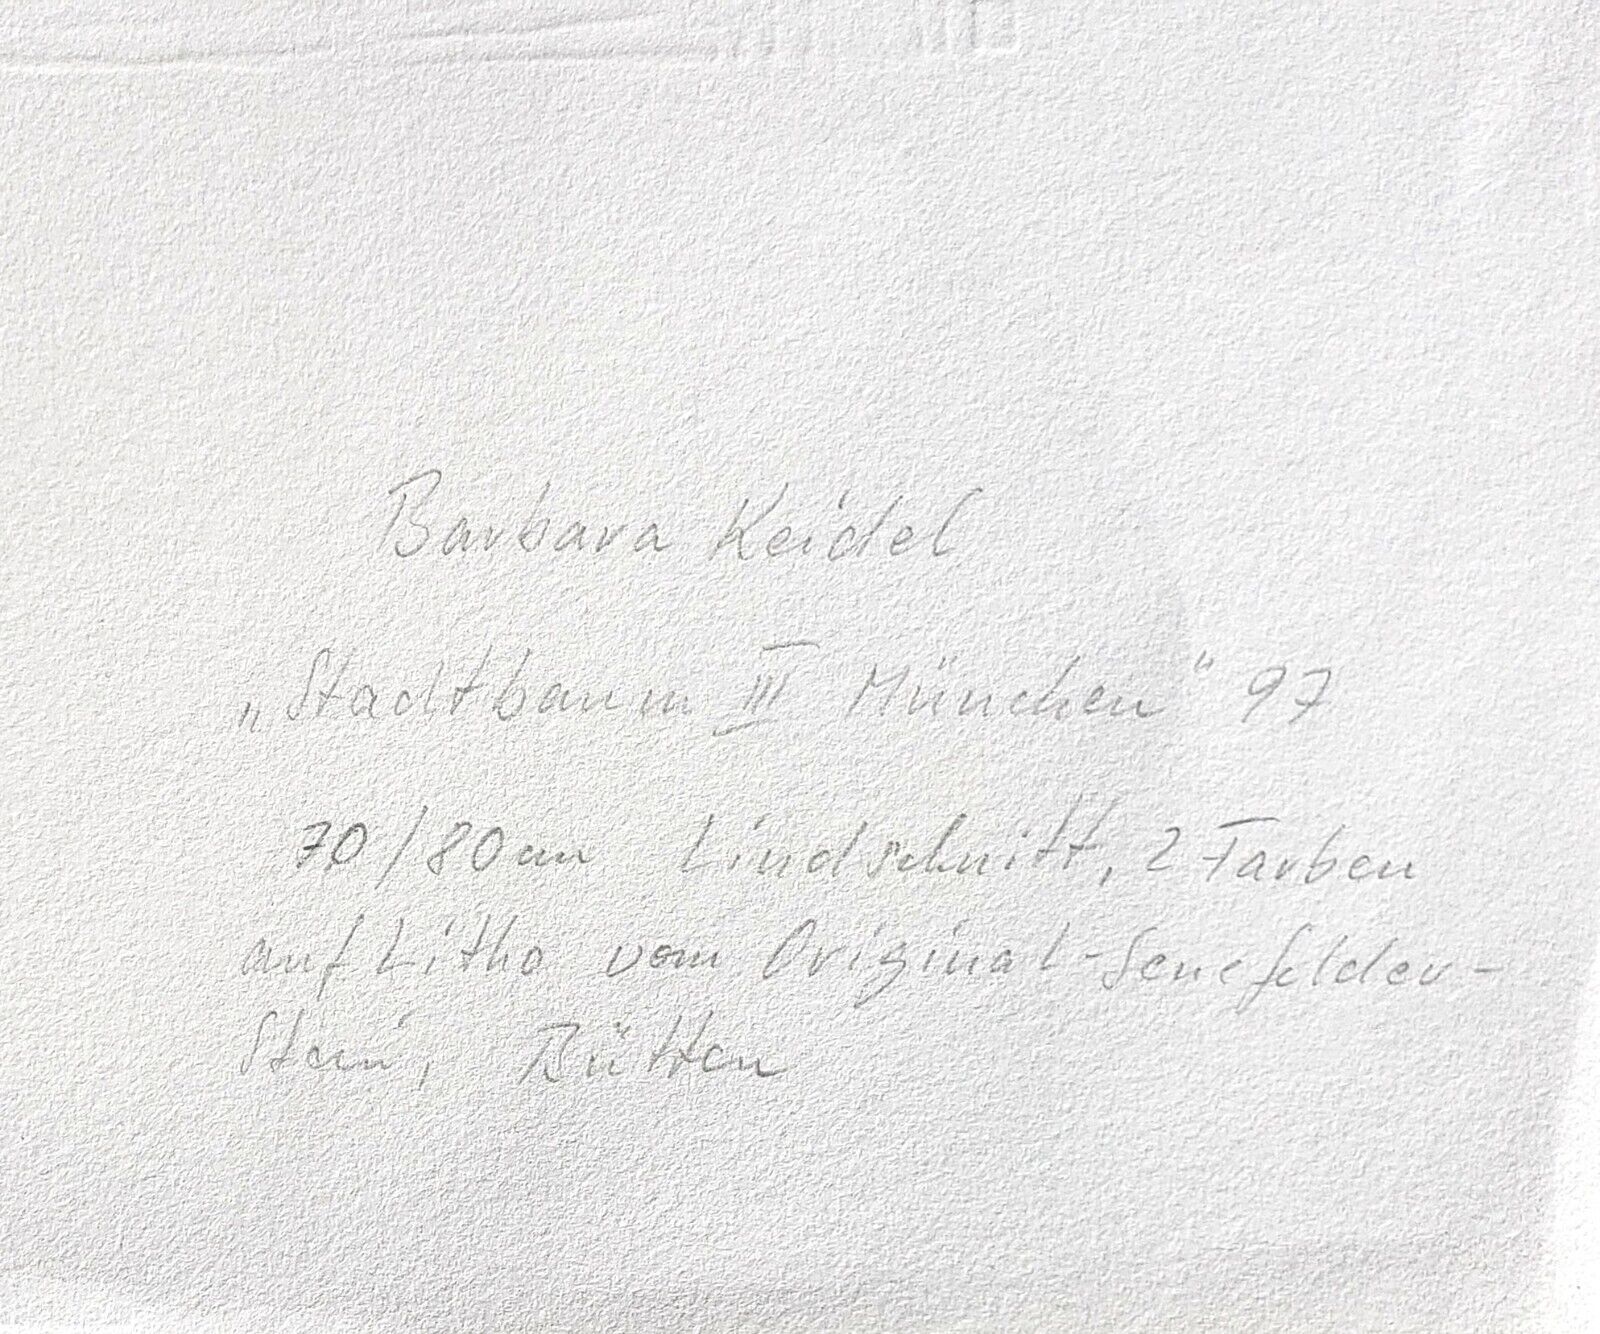 Barbara Keidel
„Stadtbaum III München" 97
70/80 cm Lindschnitt, 2 Farben
auf Litho vom Original-Senefelder-
Stein, Bütten